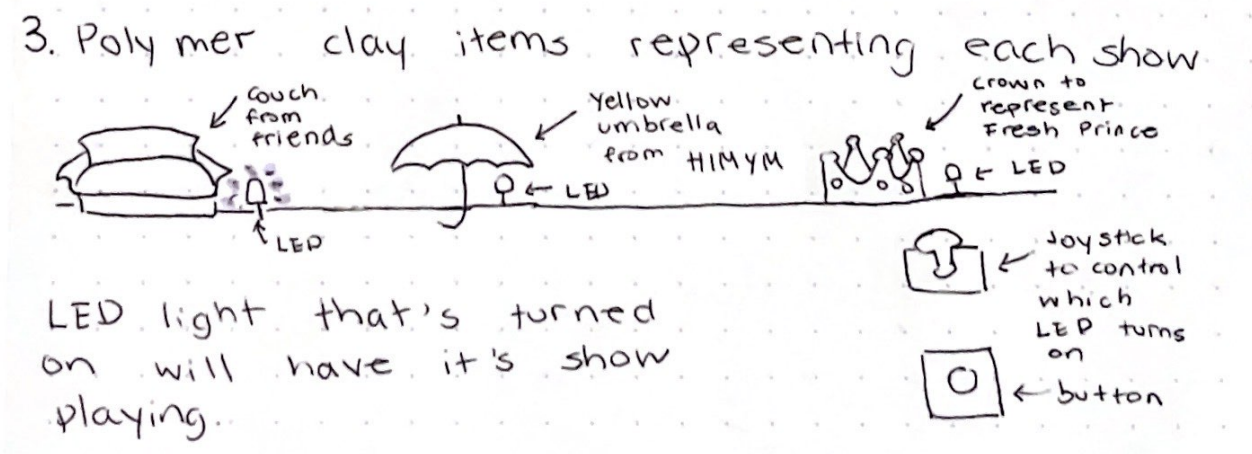 3. Polymer clay items representing each show
couch
from
friends
Yellow
umbrella
from HIMYM
crown to
represent
Fresh Prince
LED
LED
LED
Joystick
to control
which
LED turns
on
button
LED light that's turned
on will have it's show
playing.